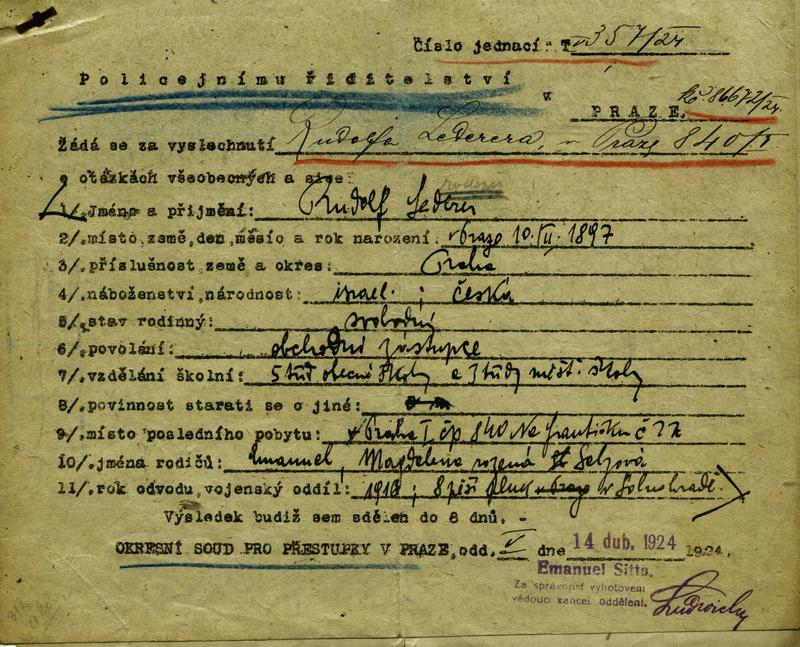 Číslo jednací: T 357/24
Policejnímu ředitelství
v PRAZE.
kč. 86672/24.
Žádá se za vyslechnutí Rudolfa Lederera, v Praze 840/I
o otázkách všeobecných a sice:
1/.Jméno a příjmění: Rudolf Lederer
2/.místo,země,den,měsíc a rok narození: v Praze 10.VII. 1897
3/.příslušnost země a okres: Praha
4/.náboženství,národnost: israel. ; česká
5/.stav rodinný: svobodný
6/.povolání: obchodní zástupce
7/.vzdělání školní: 5 tříd obecné školy a 3 třídy měšť. školy
8/.povinnost starati se o jiné:
9/.místo posledního pobytu: v Praha I čp 840 Na Františku č
10/.jména rodičů: Emanuel, Magdelena rozená
11/.rok odvodu,vojenský oddíl: ; 8 pěší pluk v
Výsledek budiž sem sdělen do 8 dnů. -
OKRESNÍ SOUD PRO PŘESTUPKY V PRAZE,odd. V dne 14 dub. 1924 1924.
Emanuel Sitta.
Za správnost vyhotovení
vedoucí kancel. oddělení.